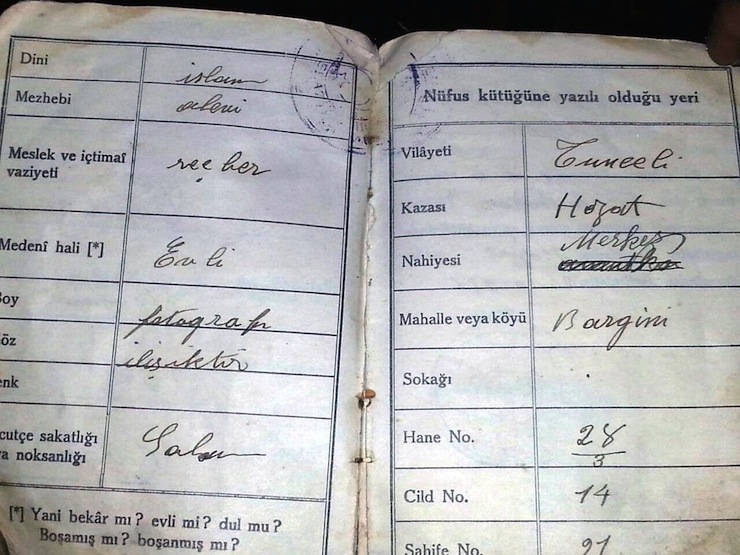 Dini islam
Mezhebi alevi
Meslek ve içtimaî
vaziyeti
reçber
Medenî hali [*] Evli
Boy fotografı
öz ilişiktir
enk
cutçe sakatlığı
a noksanlığı
Salam
[*] Yani bekâr mı? evli mi? dul mu?
Boşamış mı? boşanmış mı?
Nüfus kütüğüne yazılı olduğu yeri
Vilâyeti Tunceli
Kazası Hozat
Nahiyesi Merkez
Mahalle veya köyü Bargini
Sokağı .
Hane No. 28
3
Cild No. 14
Sahife No. 91